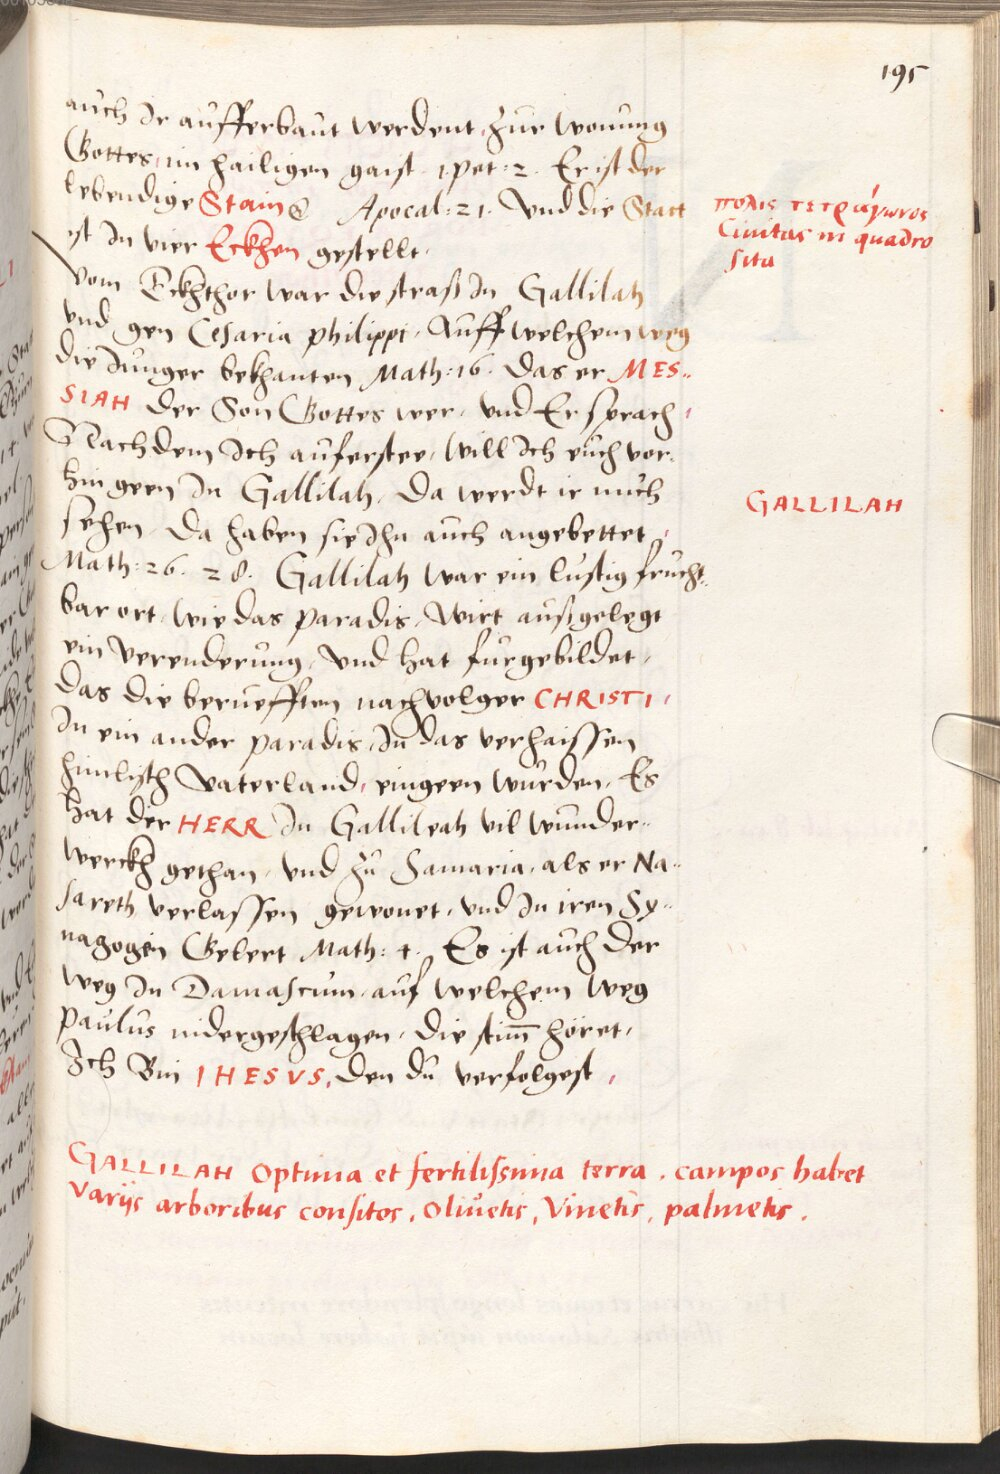 195
auch Ir aufferbaut werdent, Zur wonung
Gottes, im hailigen gaist. 1 Pet: 2. Er ist der
lebendige Stain &. Apocal: 21. Vnd die Statt
ist In vier Eckhen gestellt.
πολις τετράγωνος
Ciuitas in quadro
sita
Vom Eckhthor war die straß In Gallilah
vnd gen Cesaria philippi, Auff welchem weg
die Junger bekhanten Math: 16. Das er MES-
SIAH der Son Gottes wer, vnd Er sprach,
Nachdem Ich aufersteе, will Ich euch vor-
hin geen In Gallilah, Da werdt ir mich
GALLILAH
sehen, Da haben sie Ihn auch angebettet,
Math: 26. 28. Gallilah war ein lustig frucht-
bar ort, wie das paradis, Wirt außgelegt
ein Verenderung, Vnd hat furgebildet,
das die berüefften nachvolger CHRISTI,
In ein ander paradis, In das verhaissen
himlisch Vaterland, eingeen wurden, Es
hat der HERR In Gallileah vil wunder-
werckh gethan, vnd Zu Samaria, als er Na-
sareth verlassen gewonet, vnd In iren Sy-
nagogen Gelert Math: 4. Es ist auch der
weg In Damascum, auf welchem weg
Paulus nidergeschlagen, die stim̄ höret,
Ich Bin IHESVS, den du verfolgest,
GALLILAH Optima et fertilissima terra, campos habet
varijs arboribus consitos, Oliuetis, Vinetis, palmetis.